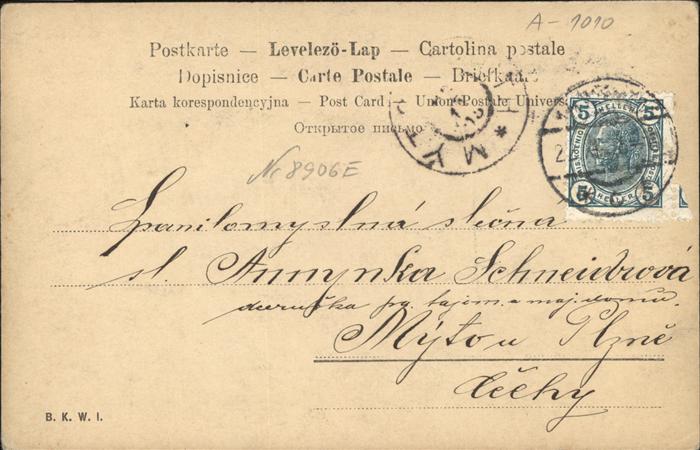 A-1010
Postkarte — Levelező-Lap — Cartolina postale
Dopisnice — Carte Postale — Briefkaart
Karta korespondencyjna — Post Card — Union Postale Univers
Открытое письмо
Nr 8906E
5 HELLER 5
5 HELLER 5
MYTH
Spanilomyslná slečna
sl. Annynka Schneidrová
dceruška pg. tajom. a maj. domu.
Mýto u Plzně
Čechy
B. K. W. I.